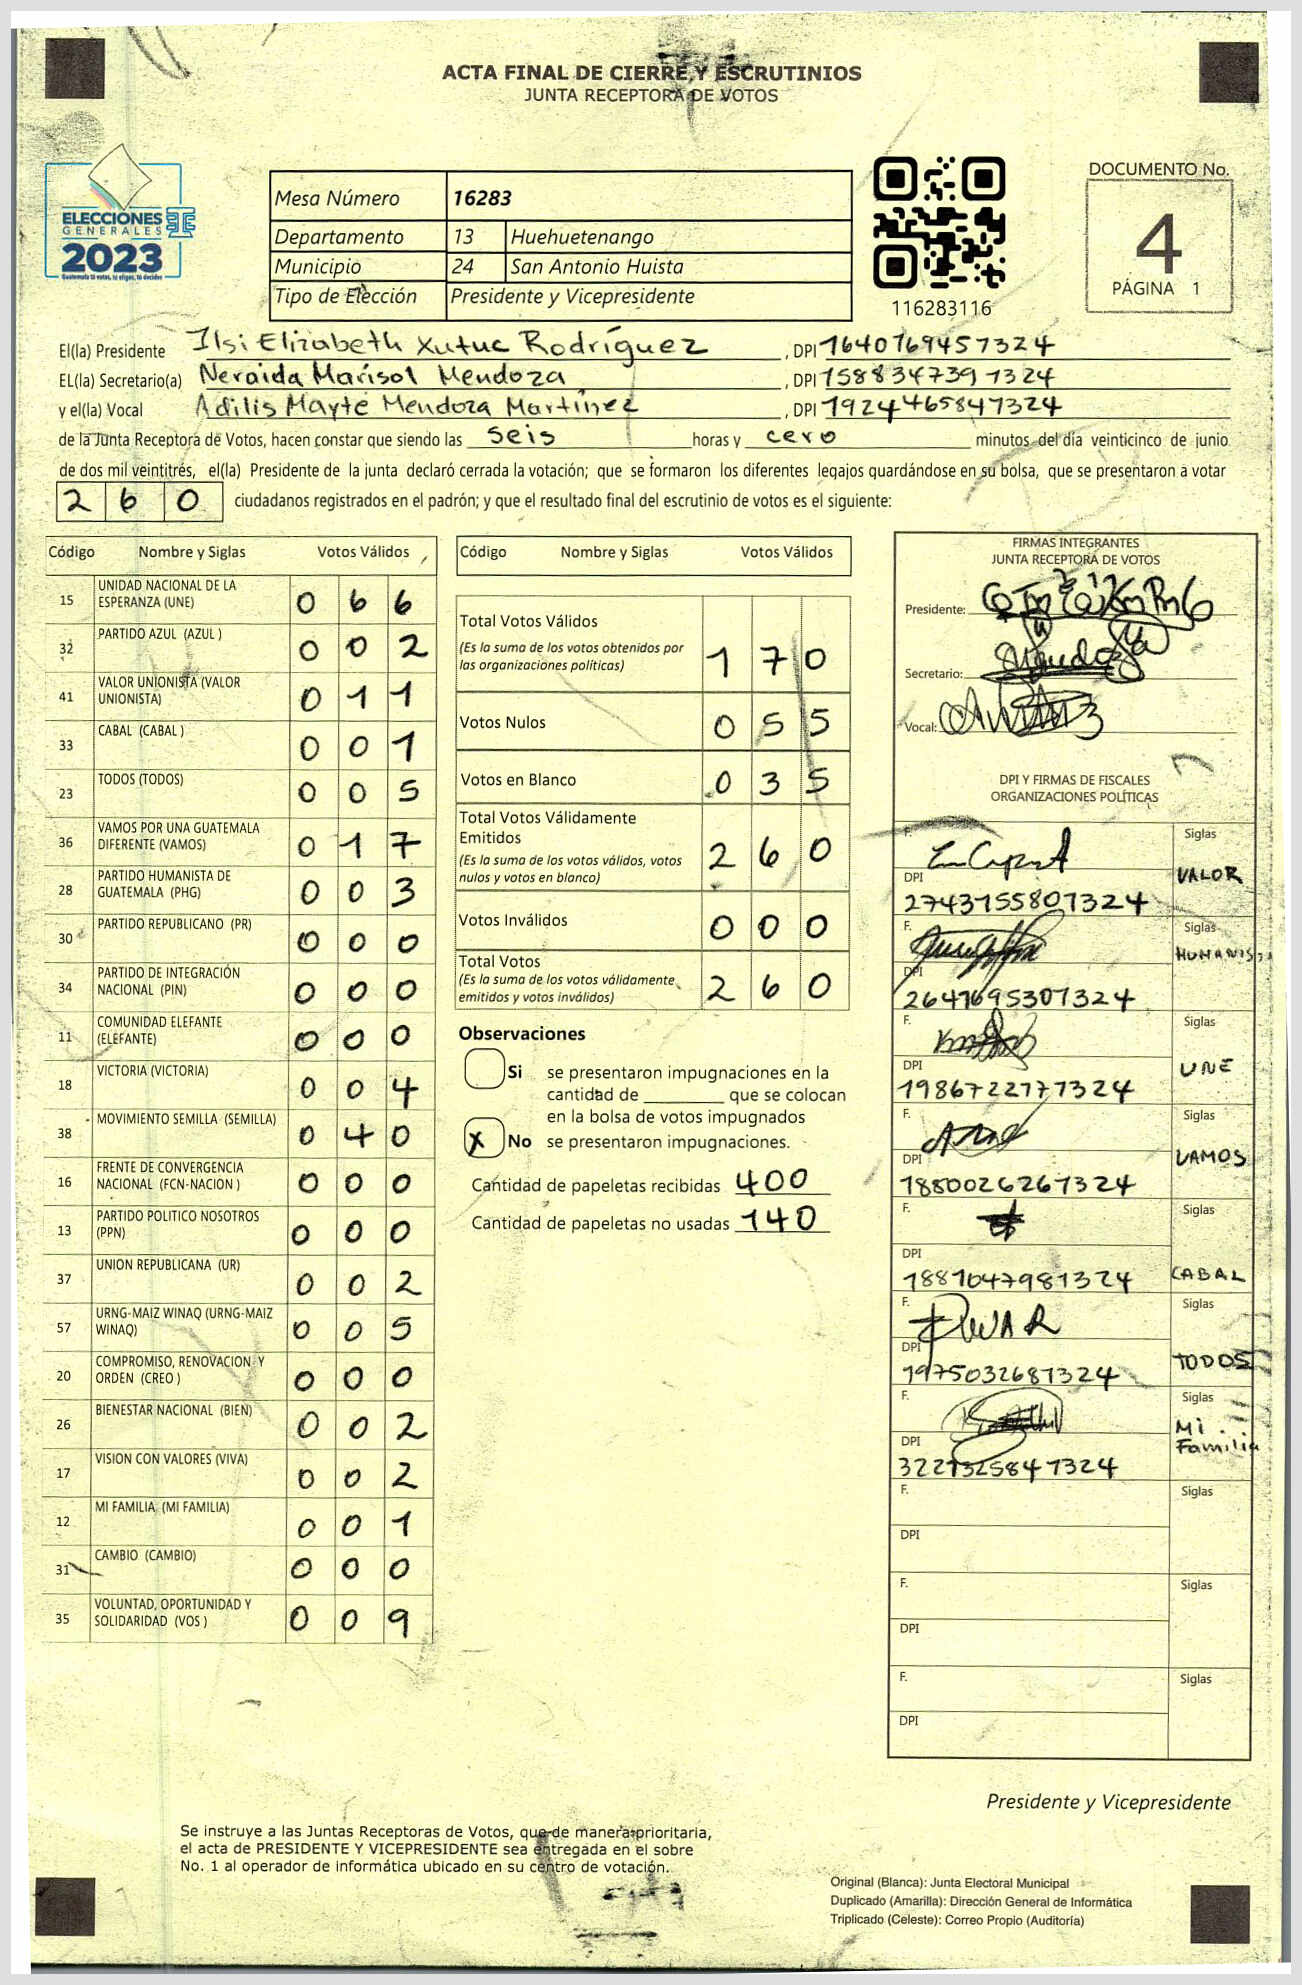 ACTA FINAL DE CIERRE Y ESCRUTINIOS
JUNTA RECEPTORA DE VOTOS
ELECCIONES
GENERALES
2023
Guatemala tú votas, tú eliges, tú decides
Mesa Número 16283
Departamento 13 Huehuetenango
Municipio 24 San Antonio Huista
Tipo de Elección Presidente y Vicepresidente
116283116
DOCUMENTO No.
4
PÁGINA 1
El(la) Presidente Ilsi Elizabeth Xutuc Rodríguez, DPI 1640769457324
EL(la) Secretario(a) Neraida Marisol Mendoza, DPI 1588347391324
y el(la) Vocal Adilis Mayte Mendoza Martínez, DPI 1924465841324
de la Junta Receptora de Votos, hacen constar que siendo las seis horas y cero minutos del día veinticinco de junio
de dos mil veintitrés, el(la) Presidente de la junta declaró cerrada la votación; que se formaron los diferentes legajos guardándose en su bolsa, que se presentaron a votar
260 ciudadanos registrados en el padrón; y que el resultado final del escrutinio de votos es el siguiente:
Código Nombre y Siglas Votos Válidos
15 UNIDAD NACIONAL DE LA ESPERANZA (UNE) 0 6 6
32 PARTIDO AZUL (AZUL ) 0 0 2
41 VALOR UNIONISTA (VALOR UNIONISTA) 0 1 1
33 CABAL (CABAL ) 0 0 1
23 TODOS (TODOS) 0 0 5
36 VAMOS POR UNA GUATEMALA DIFERENTE (VAMOS) 0 1 7
28 PARTIDO HUMANISTA DE GUATEMALA (PHG) 0 0 3
30 PARTIDO REPUBLICANO (PR) 0 0 0
34 PARTIDO DE INTEGRACIÓN NACIONAL (PIN) 0 0 0
11 COMUNIDAD ELEFANTE (ELEFANTE) 0 0 0
18 VICTORIA (VICTORIA) 0 0 4
38 MOVIMIENTO SEMILLA (SEMILLA) 0 4 0
16 FRENTE DE CONVERGENCIA NACIONAL (FCN-NACION ) 0 0 0
13 PARTIDO POLITICO NOSOTROS (PPN) 0 0 0
37 UNION REPUBLICANA (UR) 0 0 2
57 URNG-MAIZ WINAQ (URNG-MAIZ WINAQ) 0 0 5
20 COMPROMISO, RENOVACION Y ORDEN (CREO ) 0 0 0
26 BIENESTAR NACIONAL (BIEN) 0 0 2
17 VISION CON VALORES (VIVA) 0 0 2
12 MI FAMILIA (MI FAMILIA) 0 0 1
31 CAMBIO (CAMBIO) 0 0 0
35 VOLUNTAD, OPORTUNIDAD Y SOLIDARIDAD (VOS ) 0 0 9
Código Nombre y Siglas Votos Válidos
Total Votos Válidos
(Es la suma de los votos obtenidos por
las organizaciones políticas) 1 7 0
Votos Nulos 0 5 5
Votos en Blanco 0 3 5
Total Votos Válidamente
Emitidos
(Es la suma de los votos válidos, votos
nulos y votos en blanco) 2 6 0
Votos Inválidos 0 0 0
Total Votos
(Es la suma de los votos válidamente
emitidos y votos inválidos) 2 6 0
Observaciones
Si se presentaron impugnaciones en la
cantidad de ________ que se colocan
en la bolsa de votos impugnados
X No se presentaron impugnaciones.
Cantidad de papeletas recibidas 400
Cantidad de papeletas no usadas 140
FIRMAS INTEGRANTES
JUNTA RECEPTORA DE VOTOS
Presidente:
Secretario:
Vocal:
DPI Y FIRMAS DE FISCALES
ORGANIZACIONES POLÍTICAS
F. Siglas
DPI VALOR
2743155801324
F. Siglas
DPI
2641695301324
F. Siglas
DPI UNE
1986722771324
F. Siglas
DPI VAMOS
1880026261324
F. Siglas
DPI
1881047981324 CABAL
F. Siglas
DPI TODOS
1975032681324
F. Siglas
DPI Mi Familia
3221325841324
F. Siglas
DPI
F. Siglas
DPI
F. Siglas
DPI
Presidente y Vicepresidente
Se instruye a las Juntas Receptoras de Votos, que de manera prioritaria,
el acta de PRESIDENTE Y VICEPRESIDENTE sea entregada en el sobre
No. 1 al operador de informática ubicado en su centro de votación.
Original (Blanca): Junta Electoral Municipal
Duplicado (Amarilla): Dirección General de Informática
Triplicado (Celeste): Correo Propio (Auditoría)